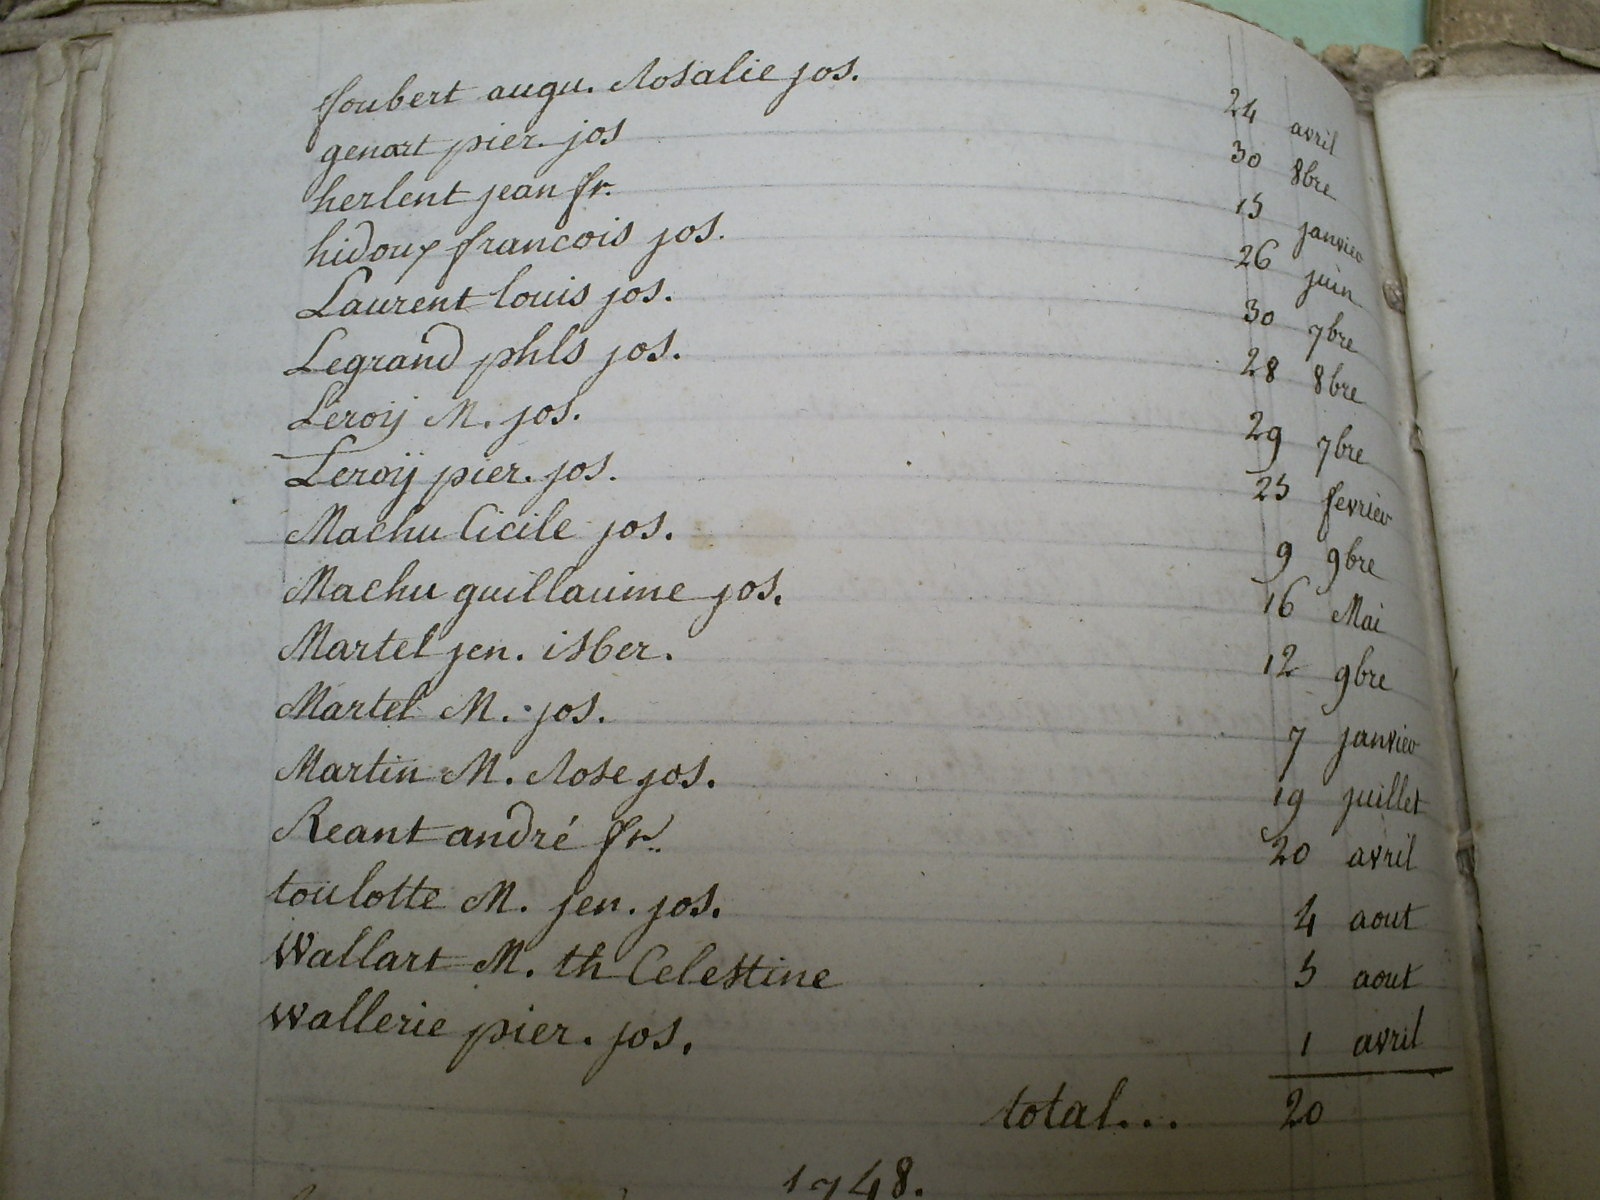 foubert augu. Rosalie jos. 24 avril
genart pier. jos 30 8bre
herlent jean fr. 15 janvier
hidoux francois jos. 26 juin
Laurent louis jos. 30 7bre
Legrand phls jos. 28 8bre
Leroÿ M. jos. 29 7bre
Leroÿ pier. jos. 25 fevrier
Machu Cicile jos. 9 9bre
Machu guillaume jos. 16 Mai
Martel jen. isber. 12 9bre
Martel M. jos. 7 janvier
Martin M. Rose jos. 19 juillet
Reant andré fr. 20 avril
toulotte M. jen. jos. 4 aout
Wallart M. th Celestine 5 aout
Wallerie pier. jos. 1 avril
total... 20
1748.